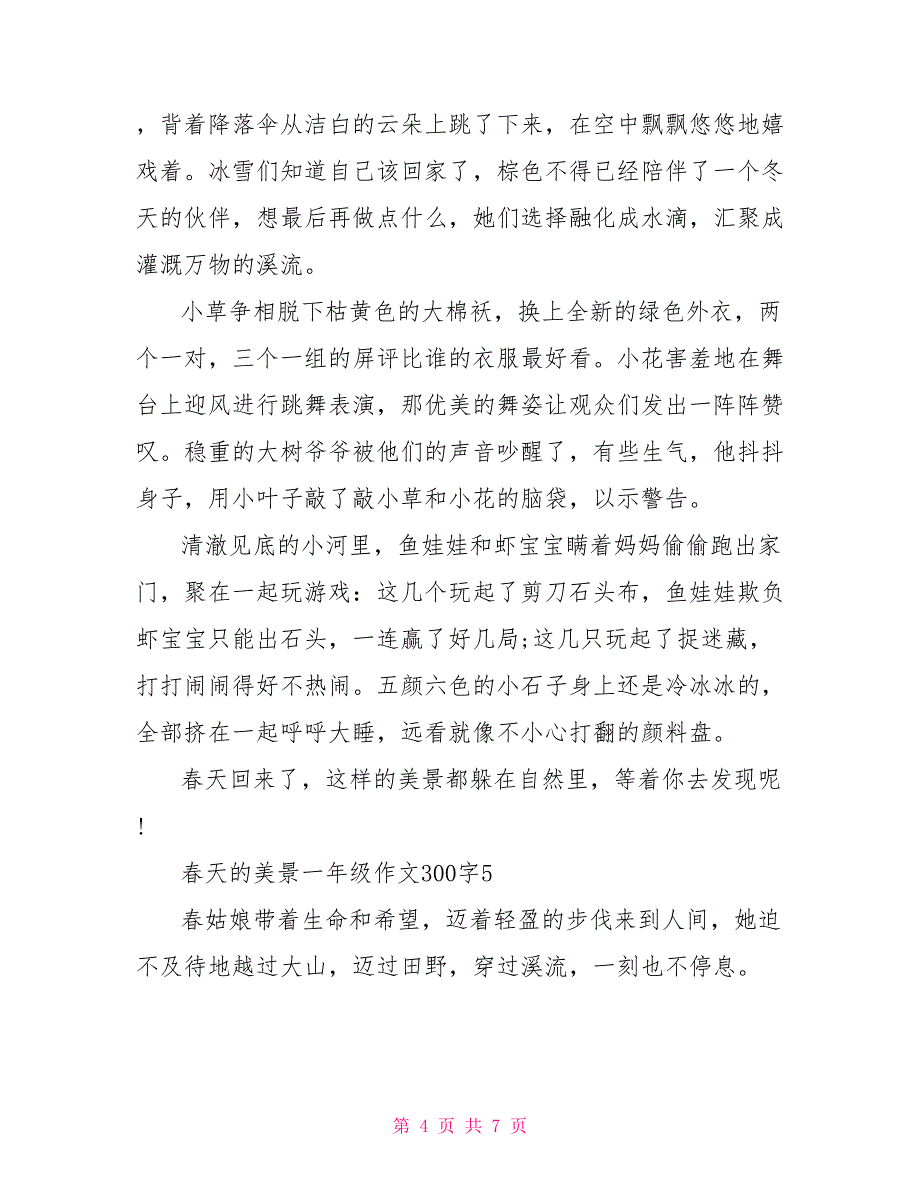 ，背着降落伞从洁白的云朵上跳了下来，在空中飘飘悠悠地嬉
戏着。冰雪们知道自己该回家了，棕色不得已经陪伴了一个冬
天的伙伴，想最后再做点什么，她们选择融化成水滴，汇聚成
灌溉万物的溪流。
小草争相脱下枯黄色的大棉袄，换上全新的绿色外衣，两
个一对，三个一组的屏评比谁的衣服最好看。小花害羞地在舞
台上迎风进行跳舞表演，那优美的舞姿让观众们发出一阵阵赞
叹。稳重的大树爷爷被他们的声音吵醒了，有些生气，他抖抖
身子，用小叶子敲了敲小草和小花的脑袋，以示警告。
清澈见底的小河里，鱼娃娃和虾宝宝瞒着妈妈偷偷跑出家
门，聚在一起玩游戏：这几个玩起了剪刀石头布，鱼娃娃欺负
虾宝宝只能出石头，一连赢了好几局;这几只玩起了捉迷藏，
打打闹闹得好不热闹。五颜六色的小石子身上还是冷冰冰的，
全部挤在一起呼呼大睡，远看就像不小心打翻的颜料盘。
春天回来了，这样的美景都躲在自然里，等着你去发现呢
!
春天的美景一年级作文300字5
春姑娘带着生命和希望，迈着轻盈的步伐来到人间，她迫
不及待地越过大山，迈过田野，穿过溪流，一刻也不停息。
第 4 页 共 7 页